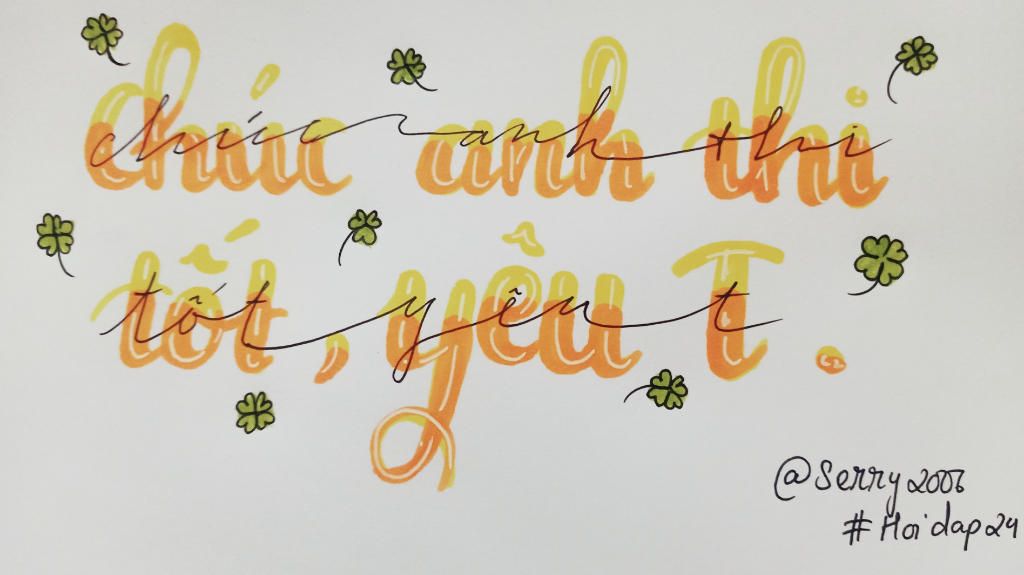 chúc anh thi
tốt, yêu T.
chúc anh thi
tốt yêu t
@Serry2006
#Hoidap24